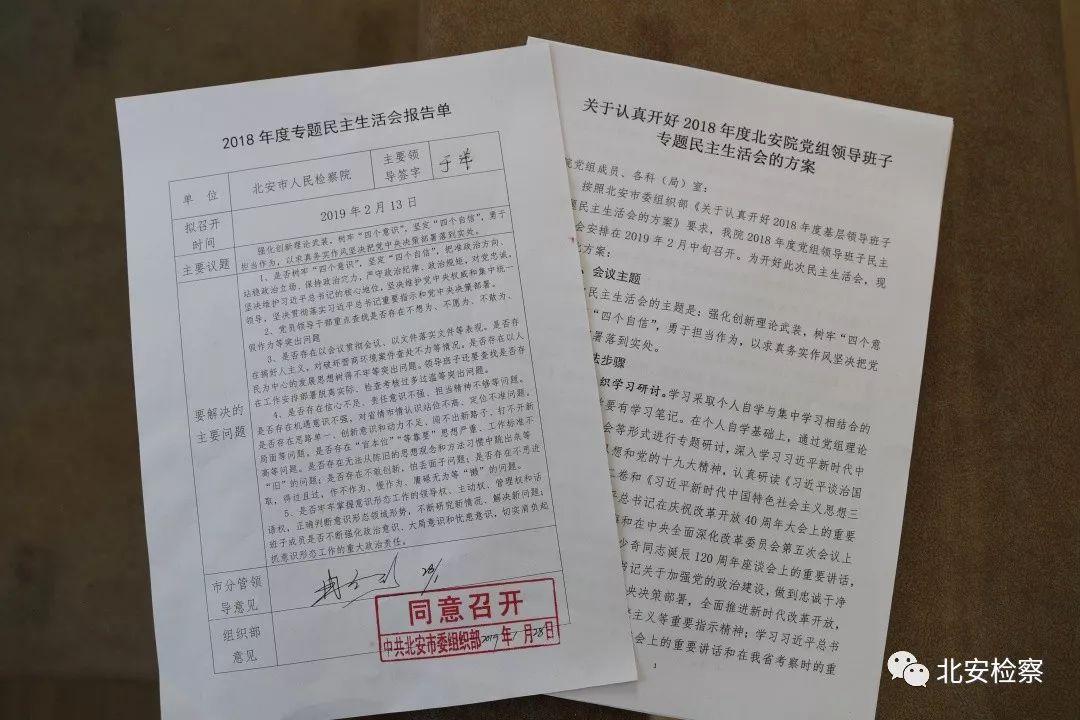 2018 年度专题民主生活会报告单
单 位
北安市人民检察院
主要领
导签字
于洋
拟召开
时间
2019 年 2 月 13 日
主要议题
强化创新理论武装，树牢“四个意识”，坚定“四个自信”，勇于
担当作为，以求真务实作风坚决把党中央决策部署落到实处。
要解决的
主要问题
1、是否树牢“四个意识”，坚定“四个自信”，把准政治方向、
站稳政治立场、保持政治定力，严守政治纪律、政治规矩，对党忠诚，
坚决维护习近平总书记的核心地位，坚决维护党中央权威和集中统一
领导，坚决贯彻落实习近平总书记重要指示和党中央决策部署。
2、党员领导干部重点查找是否存在不想为、不愿为、不敢为、
假作为等突出问题
3、是否存在以会议贯彻会议、以文件落实文件等表现。是否存
在搞好人主义，对破坏营商环境案件查处不力等情况。是否存在以人
民为中心的发展思想树得不牢等突出问题。领导班子还要查找是否存
在工作安排部署脱离实际、检查考核过多过滥等突出问题。
4、是否存在信心不足、责任意识不强、担当精神不够等问题。
是否存在机遇意识不强，对省情市情认识站位不高、定位不准问题。
是否存在思路单一、创新意识和动力不足、闯不出新路子、打不开新
局面等问题。是否存在“官本位”“等靠要”思想严重、工作标准不
高等问题。是否存在无法从陈旧的思想观念和方法习惯中跳出来等
“旧”的问题；是否存在不敢创新，怕丢面子问题；是否存在不思进
取，得过且过，作不作为、慢作为、庸碌无为等“懒”的问题。
5、是否牢牢掌握意识形态工作的领导权、主动权、管理权和话
语权，正确判断意识形态领域形势，不断研究新情况、解决新问题；
班子成员是否不断强化政治意识、大局意识和忧患意识，切实肩负起
抓意识形态工作的重大政治责任。
市分管领
导意见
组织部
意见
同意召开
中共北安市委组织部2019年1月28日
关于认真开好 2018 年度北安院党组领导班子
专题民主生活会的方案
院党组成员、各科（局）室：
按照北安市委组织部《关于认真开好 2018 年度基层领导班子
题民主生活会的方案》要求，我院 2018 年度党组领导班子民主
会安排在 2019 年 2 月中旬召开。为开好此次民主生活会，现
出方案：
会议主题
民主生活会的主题是：强化创新理论武装，树牢“四个意
“四个自信”，勇于担当作为，以求真务实作风坚决把党
署落到实处。
法步骤
织学习研讨。学习采取个人自学与集中学习相结合的
要有学习笔记。在个人自学基础上，通过党组理论
会等形式进行专题研讨，深入学习习近平新时代中
思想和党的十九大精神，认真研读《习近平谈治国
二卷和《习近平新时代中国特色社会主义思想三
平总书记在庆祝改革开放 40 周年大会上的重要
和在中央全面深化改革委员会第五次会议上
少奇同志诞辰 120 周年座谈会上的重要讲话，
书记关于加强党的政治建设，做到忠诚干净
央决策部署，全面推进新时代改革开放，
主义等重要指示精神；学习习近平总书
会上的重要讲话和在我省考察时的重
1
北安检察